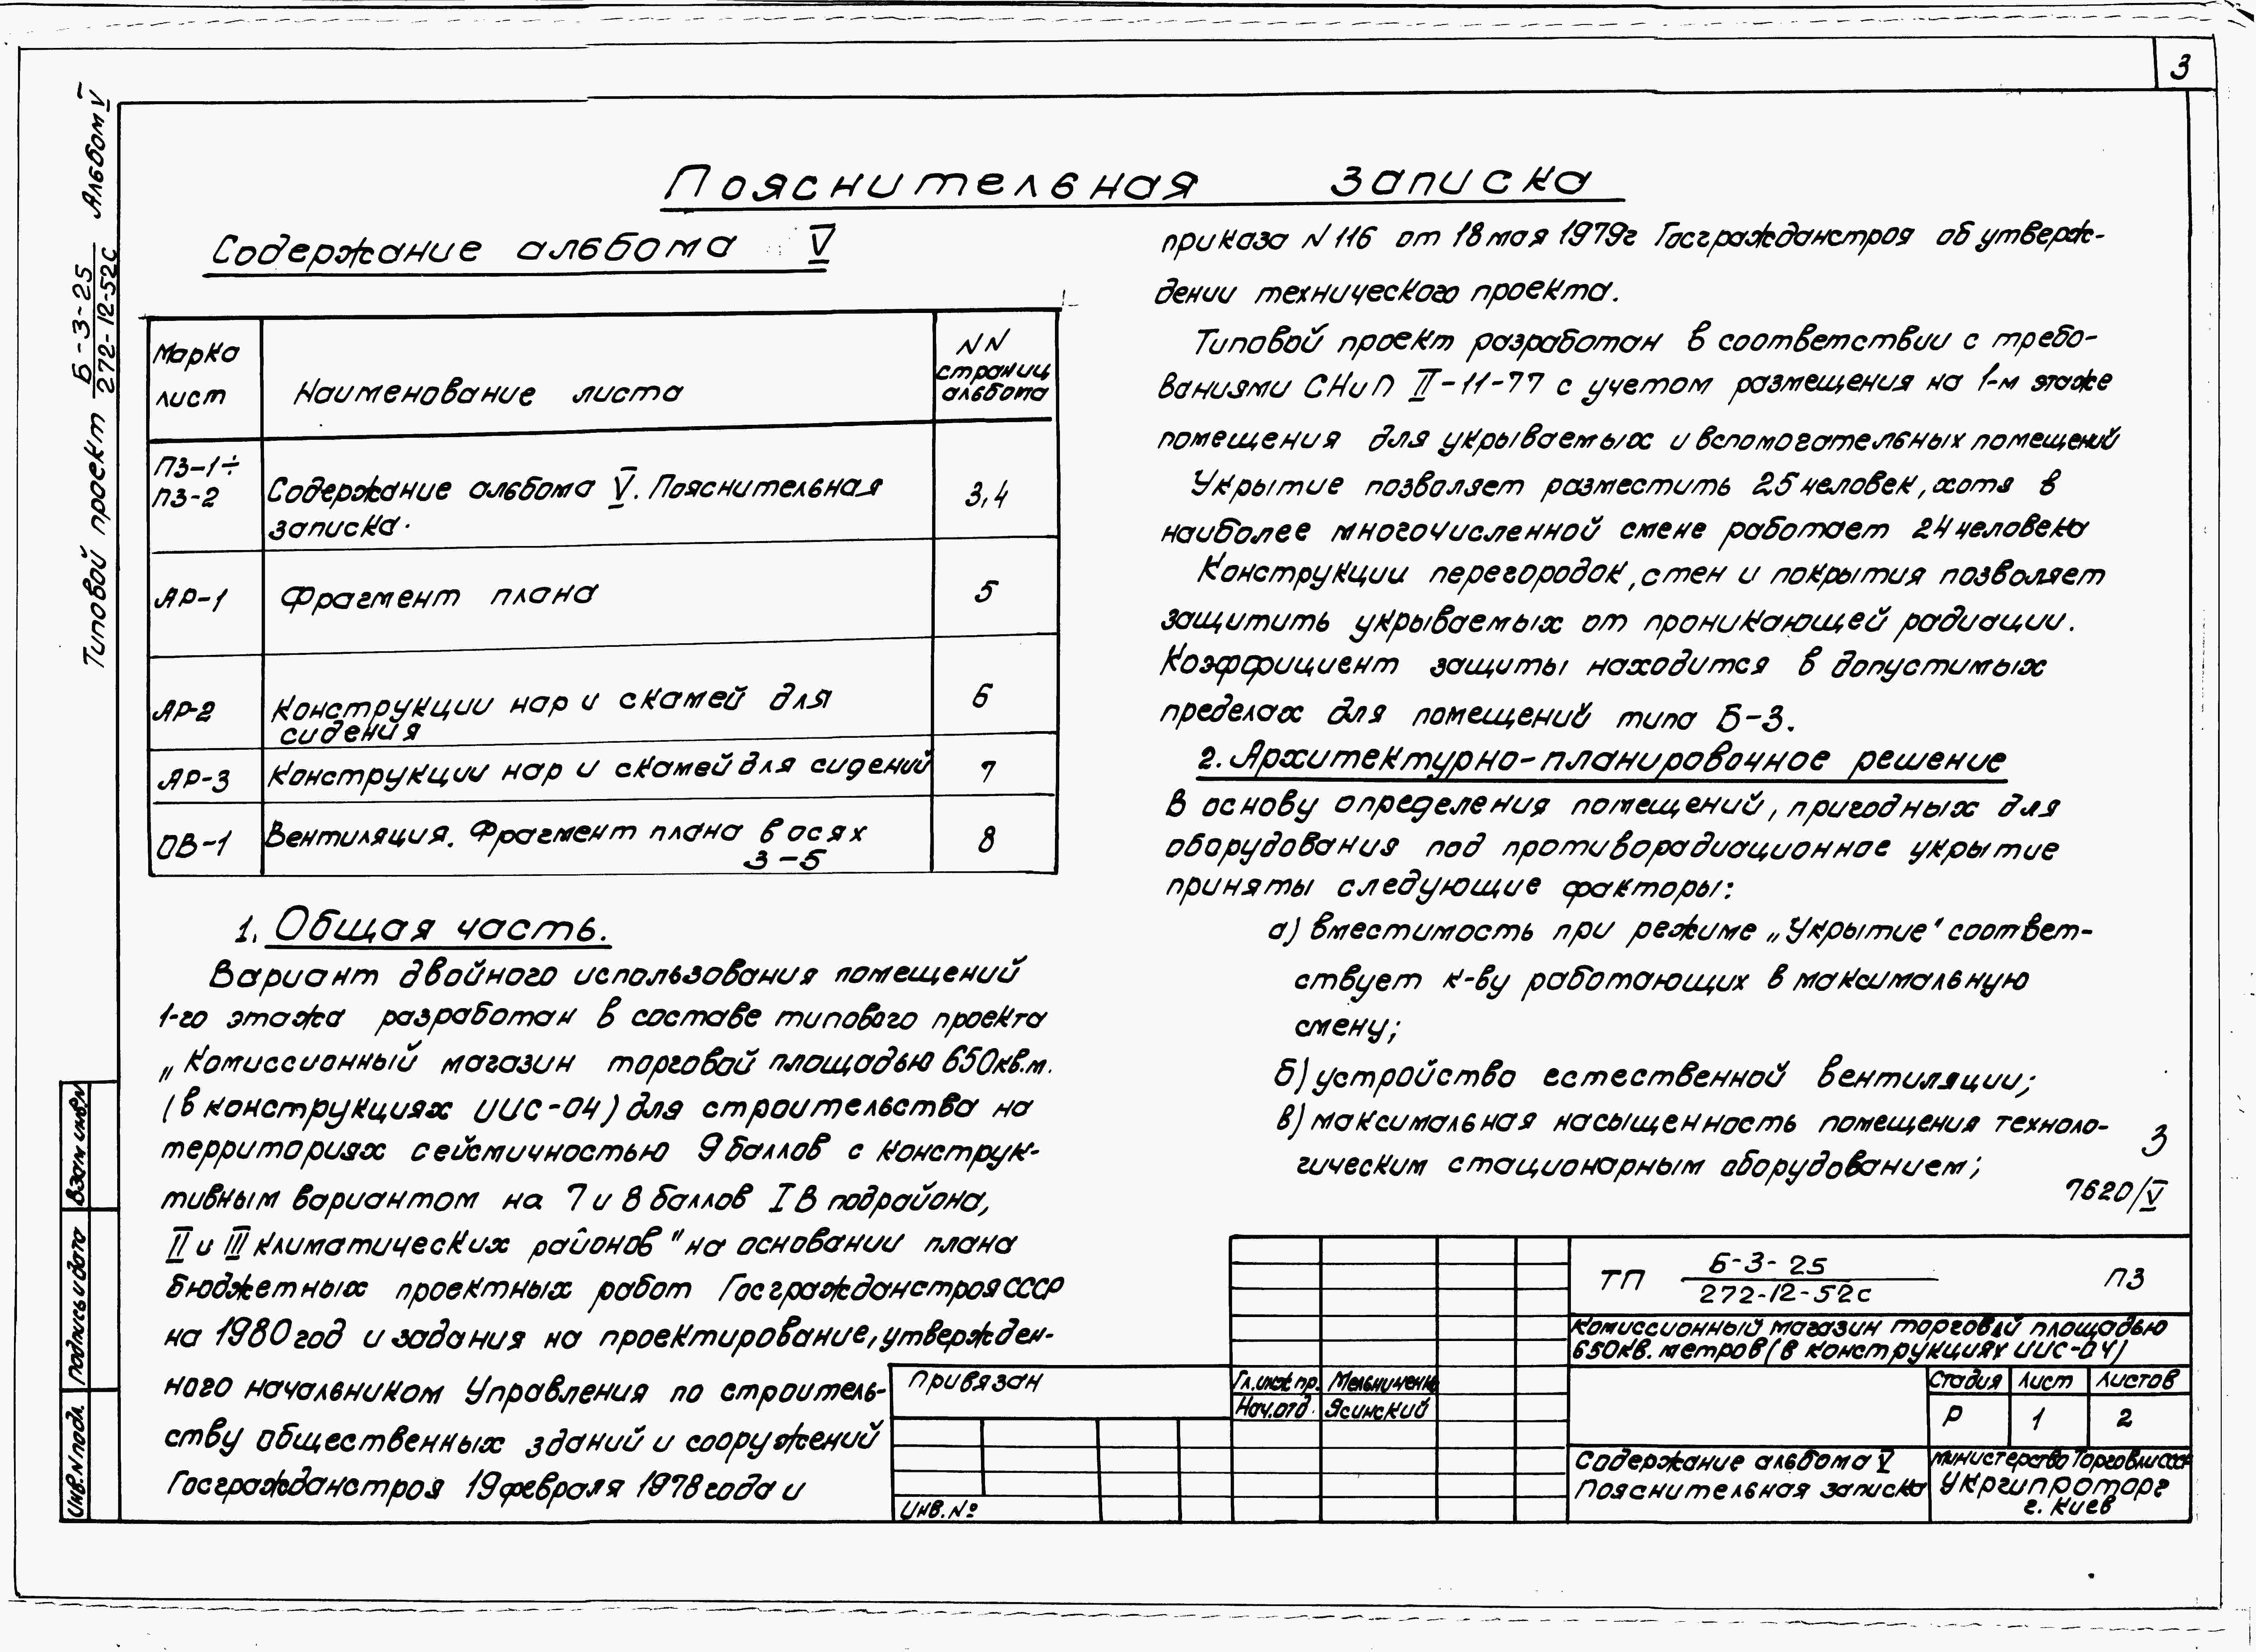 3
Типовой проект Б-3-25 Альбом V
272-12-52С
Пояснительная записка
Содержание альбома V
Марка
лист
Наименование листа
NN
страниц
альбома
ПЗ-1÷
ПЗ-2
Содержание альбома V. Пояснительная
записка.
3,4
АР-1
Фрагмент плана
5
АР-2
Конструкции нар и скамей для
сидения
6
АР-3
Конструкции нар и скамей для сидений
7
ОВ-1
Вентиляция. Фрагмент плана в осях
3-5
8
1. Общая часть.
Вариант двойного использования помещений
1-го этажа разработан в составе типового проекта
„Комиссионный магазин торговой площадью 650кв.м.
(в конструкциях ИИС-04) для строительства на
территориях сейсмичностью 9 баллов с конструк-
тивным вариантом на 7 и 8 баллов IВ подрайона,
II и III климатических районов" на основании плана
бюджетных проектных работ Госгражданстроя СССР
на 1980 год и задания на проектирование, утвержден-
ного начальником Управления по строитель-
ству общественных зданий и сооружений
Госгражданстроя 19 февраля 1978 года и
приказа N 116 от 18 мая 1979г Госгражданстроя об утверж-
дении технического проекта.
Типовой проект разработан в соответствии с требо-
ваниями СНиП II-11-77 с учетом размещения на 1-м этаже
помещения для укрываемых и вспомогательных помещений
Укрытие позволяет разместить 25 человек, хотя в
наиболее многочисленной смене работает 24 человека
Конструкции перегородок, стен и покрытия позволяет
защитить укрываемых от проникающей радиации.
Коэффициент защиты находится в допустимых
пределах для помещений типа Б-3.
2. Архитектурно-планировочное решение
В основу определения помещений, пригодных для
оборудования под противорадиационное укрытие
приняты следующие факторы:
а) вместимость при режиме „Укрытие" соответ-
ствует к-ву работающих в максимальную
смену;
б) устройство естественной вентиляции;
в) максимальная насыщенность помещения техноло-
гическим стационарным оборудованием;
3
7620/V
ТП Б-3-25 ПЗ
272-12-52с
Комиссионный магазин торговой площадью
650кв. метров (в конструкциях ИИС-04)
Привязан
Инв.№
Гл.инж пр. Мельниченко
Нач.отд. Ясинский
Стадия Лист Листов
Р 1 2
Содержание альбома V
Пояснительная записка
Министерство Торговли СССР
Укргипроторг
г. Киев
Взам инв.N
Подпись и дата
Инв.N подл.